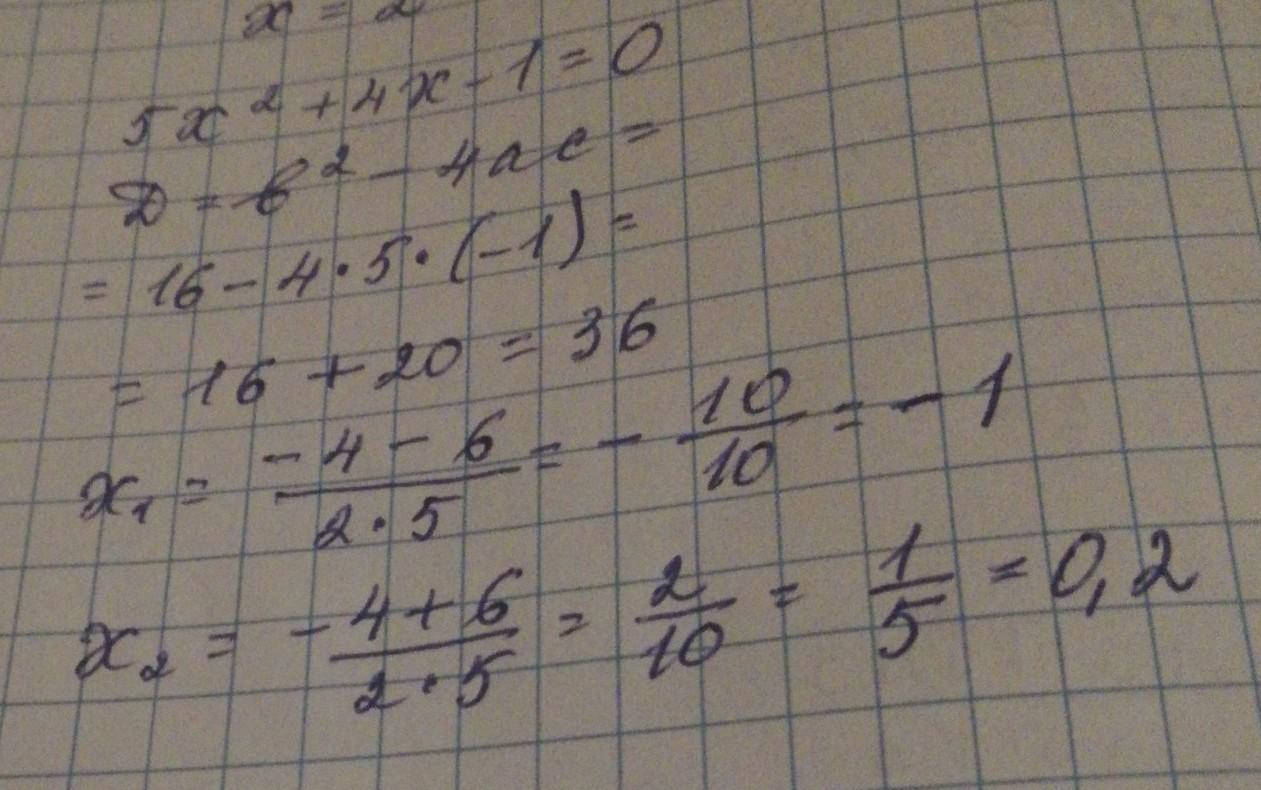 x = 2
5x² + 4x - 1 = 0
D = b² - 4ac =
= 16 - 4·5·(-1) =
= 16 + 20 = 36
x₁ = (-4 - 6)/(2·5) = -10/10 = -1
x₂ = (-4 + 6)/(2·5) = 2/10 = 1/5 = 0,2